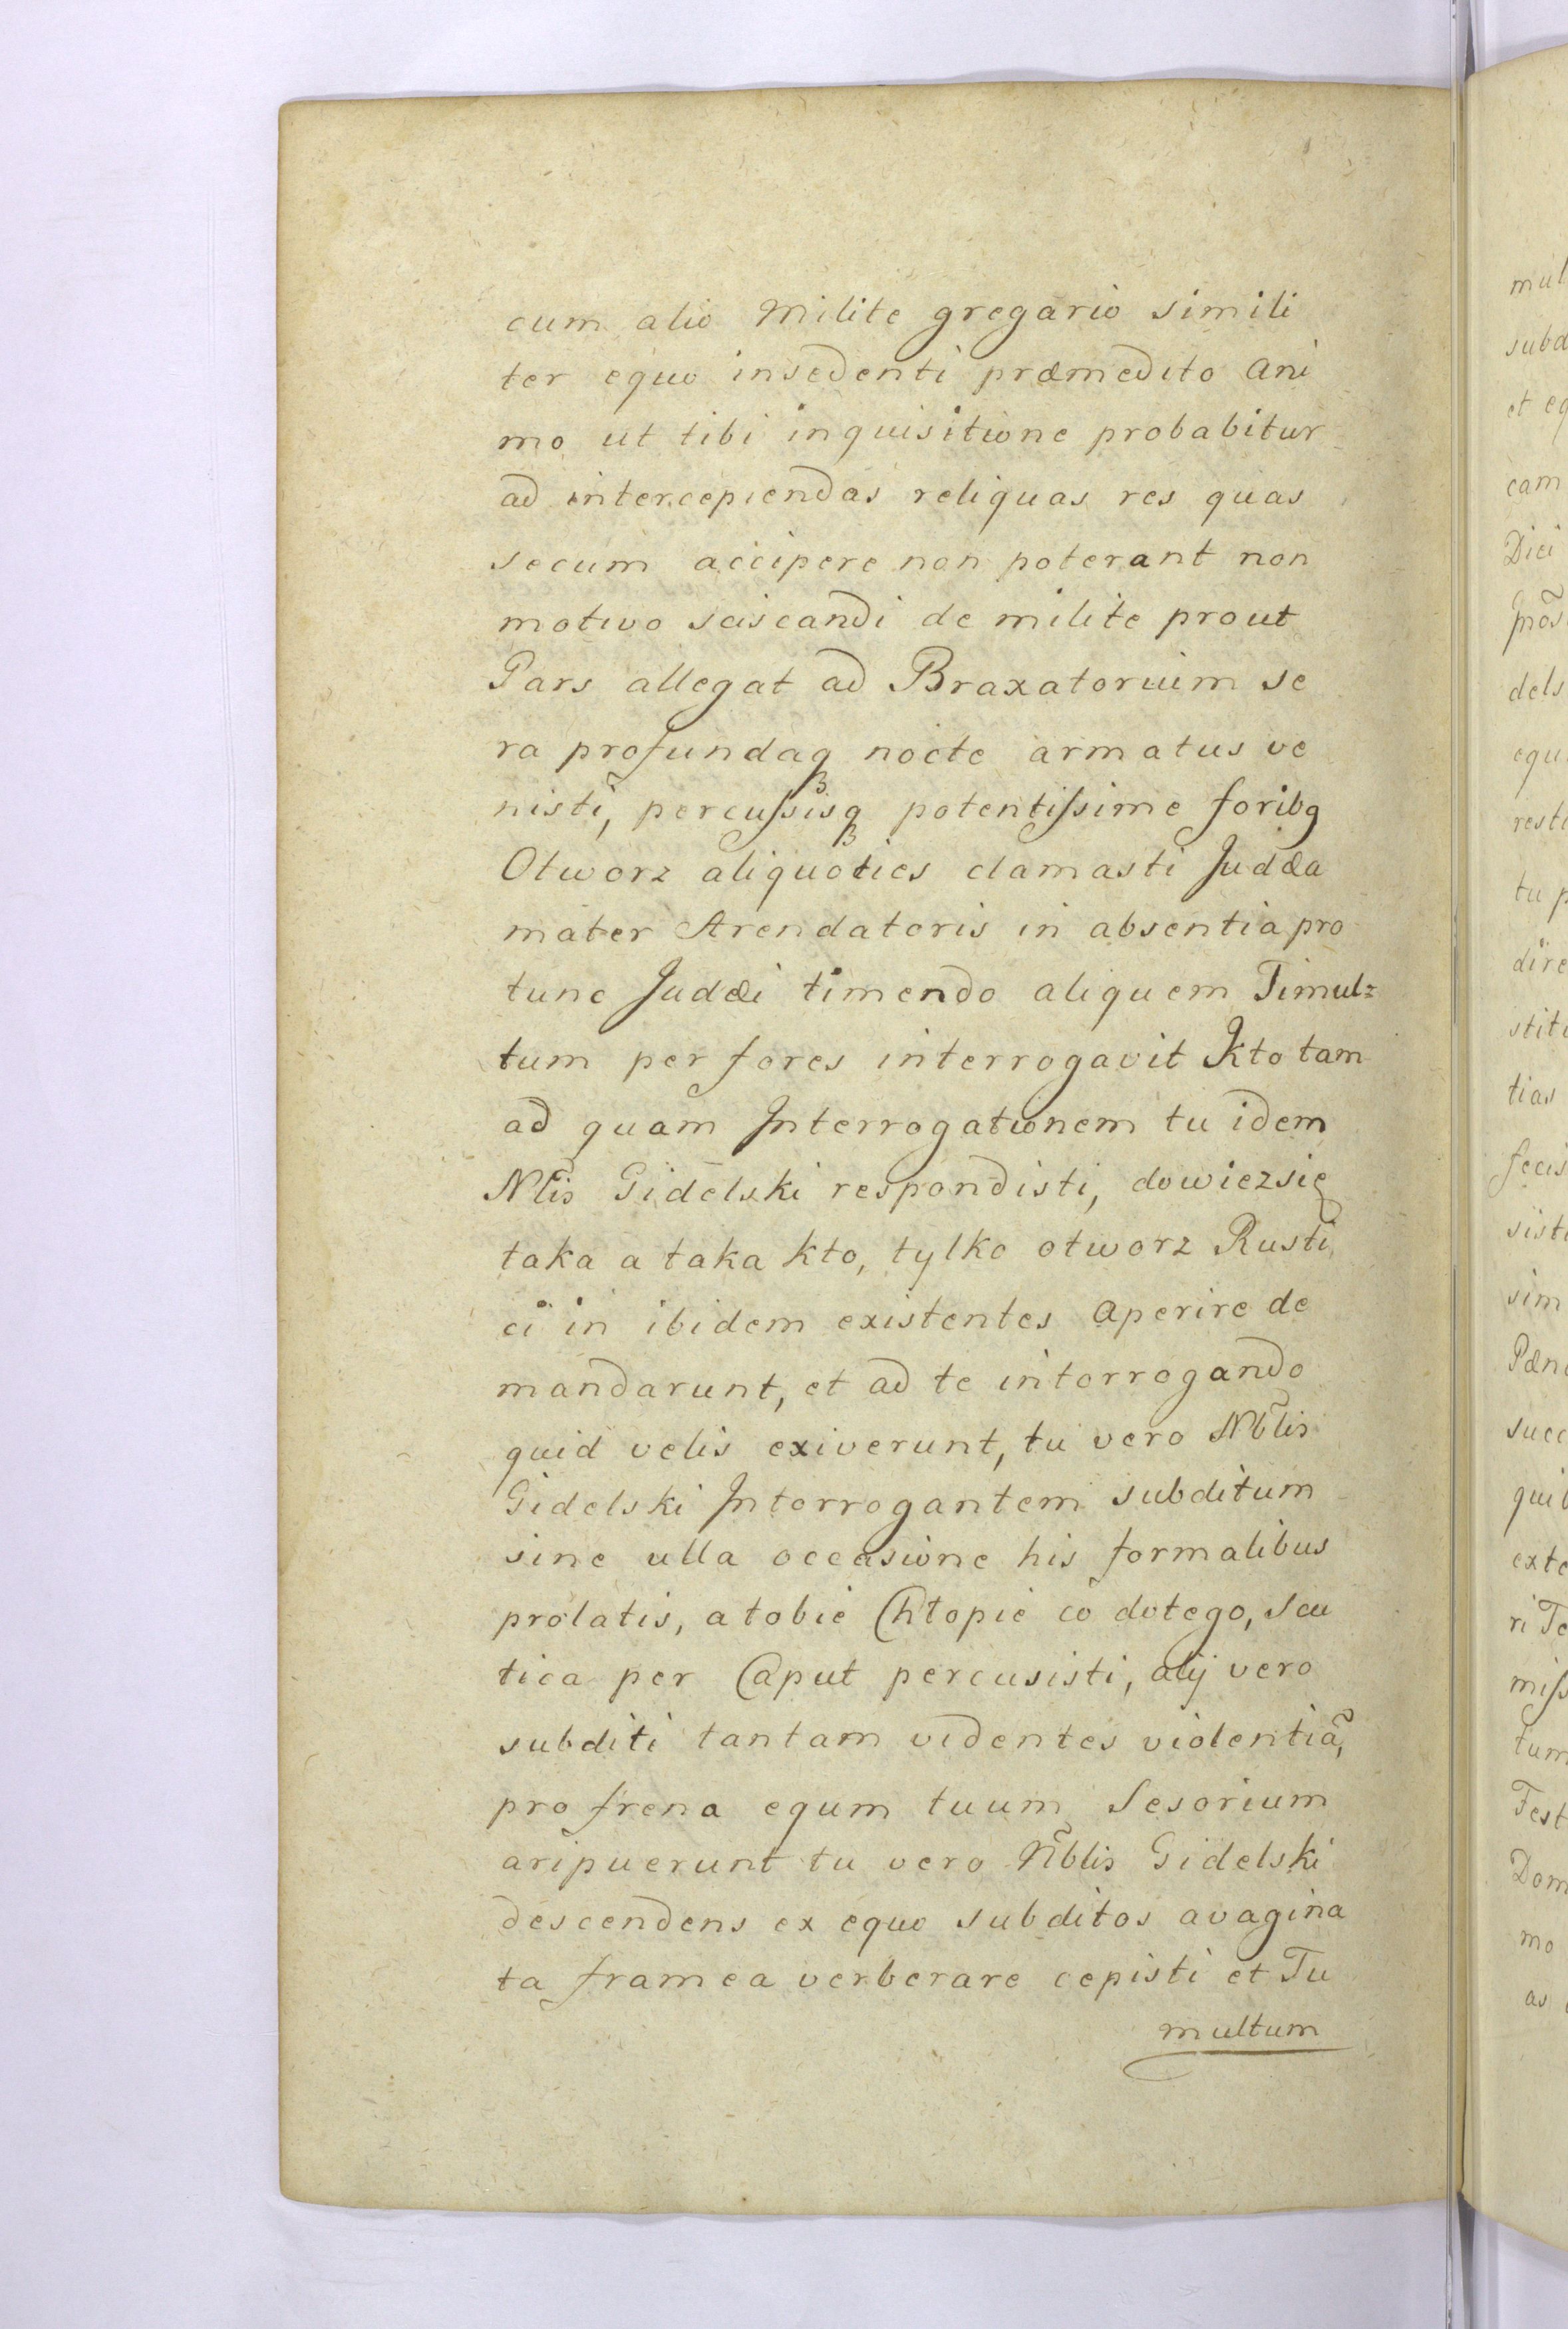 cum alio Milite gregario simili
ter equo insedenti præmedito Ani
mo ut tibi inquisitione probabitur
ad intercepiendas reliquas res quas
secum accipere non poterant non
motivo sciscandi de milite prout
Pars allegat ad Braxatorium se
ra profundaqꝫ nocte armatus ve
nisti, percuſsisqꝫ potentiſsime foribꝗ
Otworz aliquoties clamasti Judæa
mater Arendatoris in absentia pro
tunc Judæi timendo aliquem Timul=
tum per fores interrogavit Kto tam
ad quam Interrogationem tu idem
Nl̃is Gidelski respondisti, dowiezsię
taka a taka kto, tylko otworz Rusti
ci in ibidem existentes aperire de
mandarunt, et ad te intorrogando
quid velis exiverunt, tu vero Nb̃lis
Gidelski Intorrogantem subditum
sine ulla occasione his formalibus
prolatis, a tobie Chłopie co dotego, scu
tica per Caput percusisti, alij vero
subditi tantam videntes violentiã,
pro frena equm tuum Sesorium
aripuerunt tu vero Ñblis Gidelski
descendens ex equo subditos avagina
ta framea verberare cepisti et Tu
multum
mul
subd
et eq
cam
Dici
dels
equ
resti
tu p
dire
stit
tias
fecis
sist
sim
Pæn
succ
qui
exte
ri Te
miſs
tum
Test
Dom
mo
as